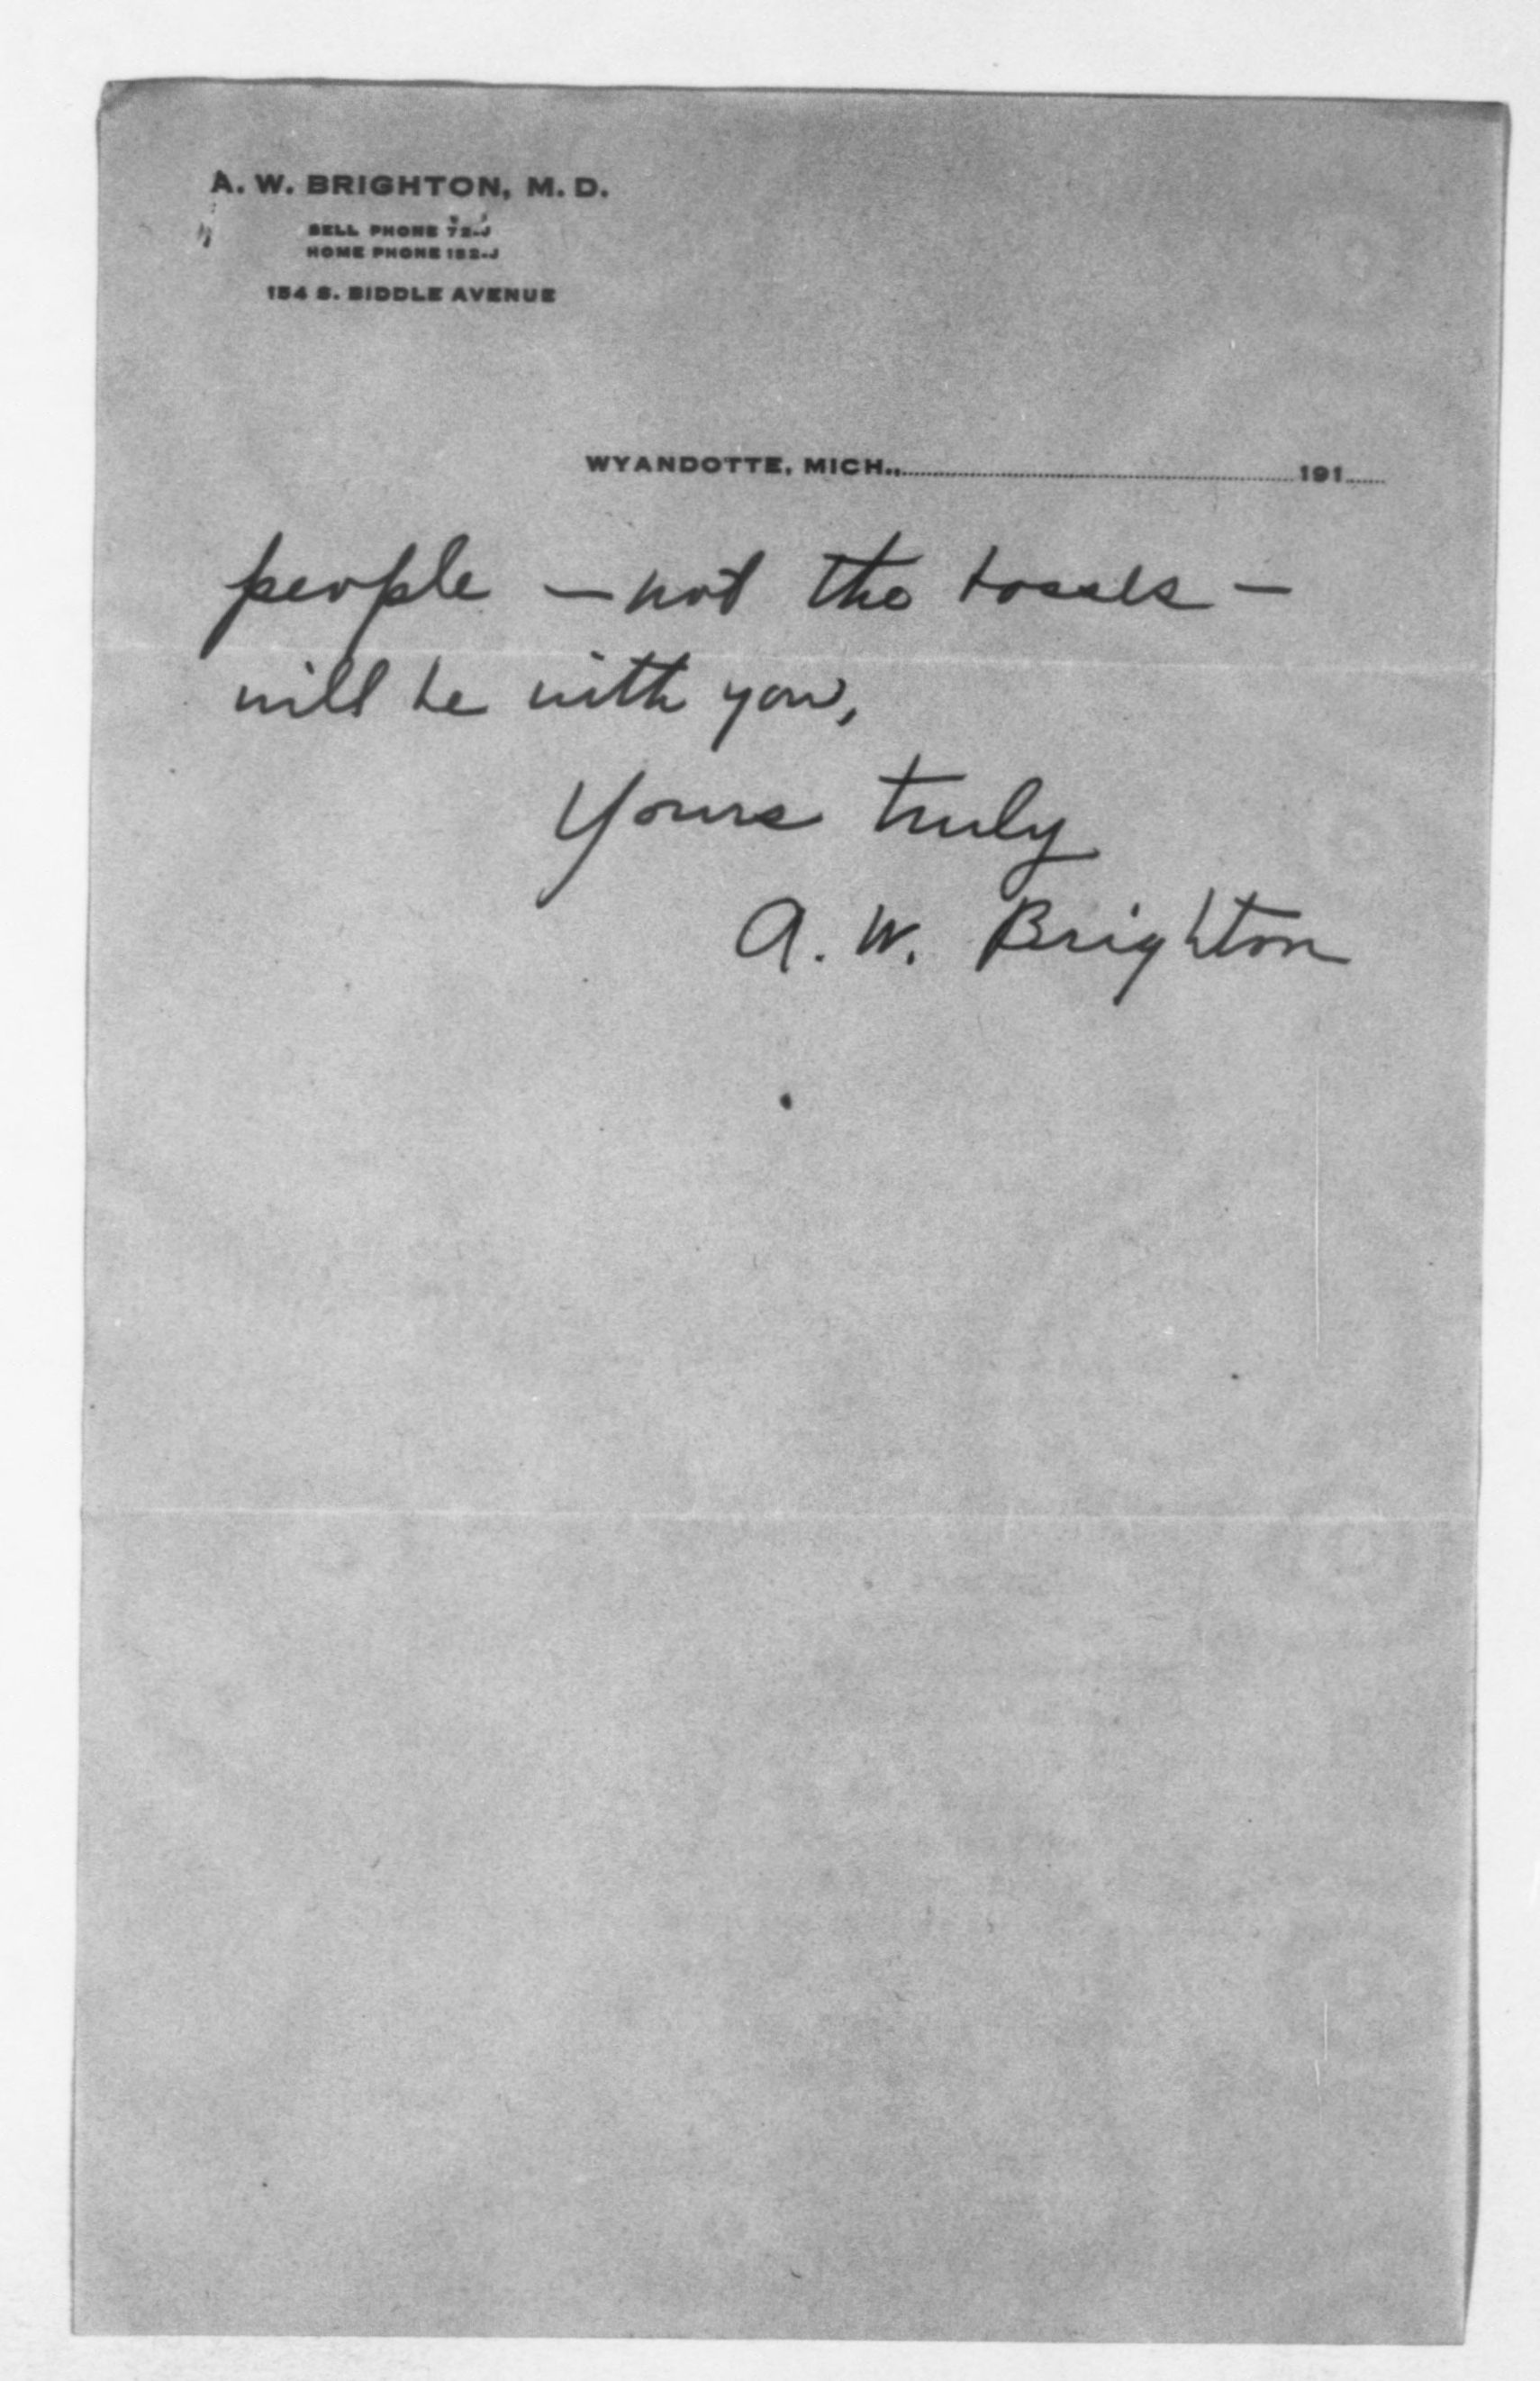 A. W. BRIGHTON, M. D.
BELL PHONE 72-J
HOME PHONE 152-J
154 S. BIDDLE AVENUE
WYANDOTTE, MICH., 191
people — not the bosses —
will be with you,
Yours truly
A. W. Brighton